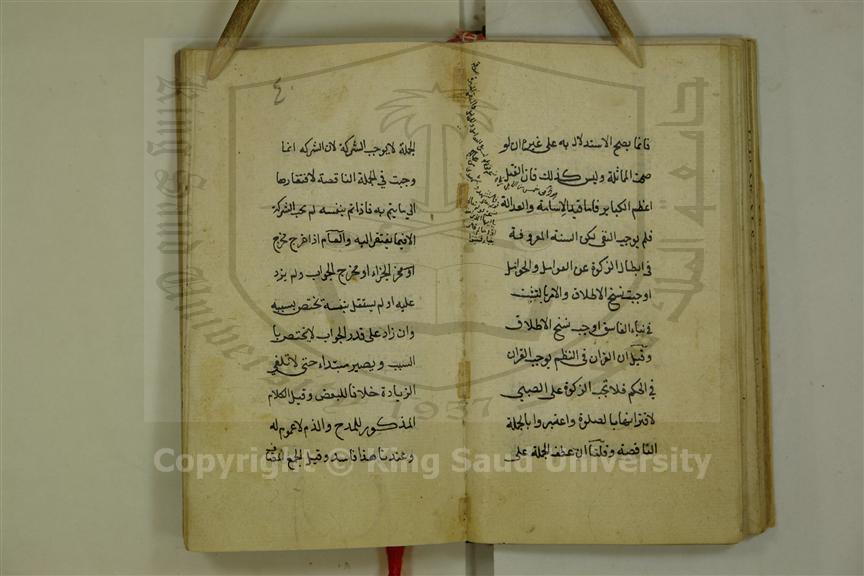 فانما يصح الاستدلال به على غيره ان لو
صحت المماثلة وليس كذلك فان القتل
اعظم الكبائر فاما قيد الاسامة والعدالة
فلم يوجب النفي لكن السنة المعروفة
في ابطال الزكوة عن العوامل والحوامل
اوجبت نسخ الاطلاق والامر بالتثبت
في نباء الفاسق اوجب نسخ الاطلاق
وقيل ان القران في النظم يوجب القران
في الحكم فلا تجب الزكوة على الصبي
لاقترانها بالصلوة واعتبروا بالجملة
الناقصة وقلنا ان عطف الجملة على
٤٠
الجملة لا يوجب الشركة لان الشركة انما
وجبت في الجملة الناقصة لافتقارها
الى ما يتم به فاذا تم بنفسه لم تجب الشركة
الا فيما يفتقر اليه والعام اذا خرج مخرج
الجزاء او مخرج الجواب ولم يزد
عليه او لم يستقل بنفسه تختص بسببه
وان زاد على قدر الجواب لا يختص با
السبب ويصير مبتداء حتى لا تلغي
الزيادة خلافا للبعض وقيل الكلام
المذكور للمدح والذم لا عموم له
وعندنا هذا فاسد وقيل الجمع المضاف
جامعة الملك سعود
King Saud University
1957
Copyright © King Saud University